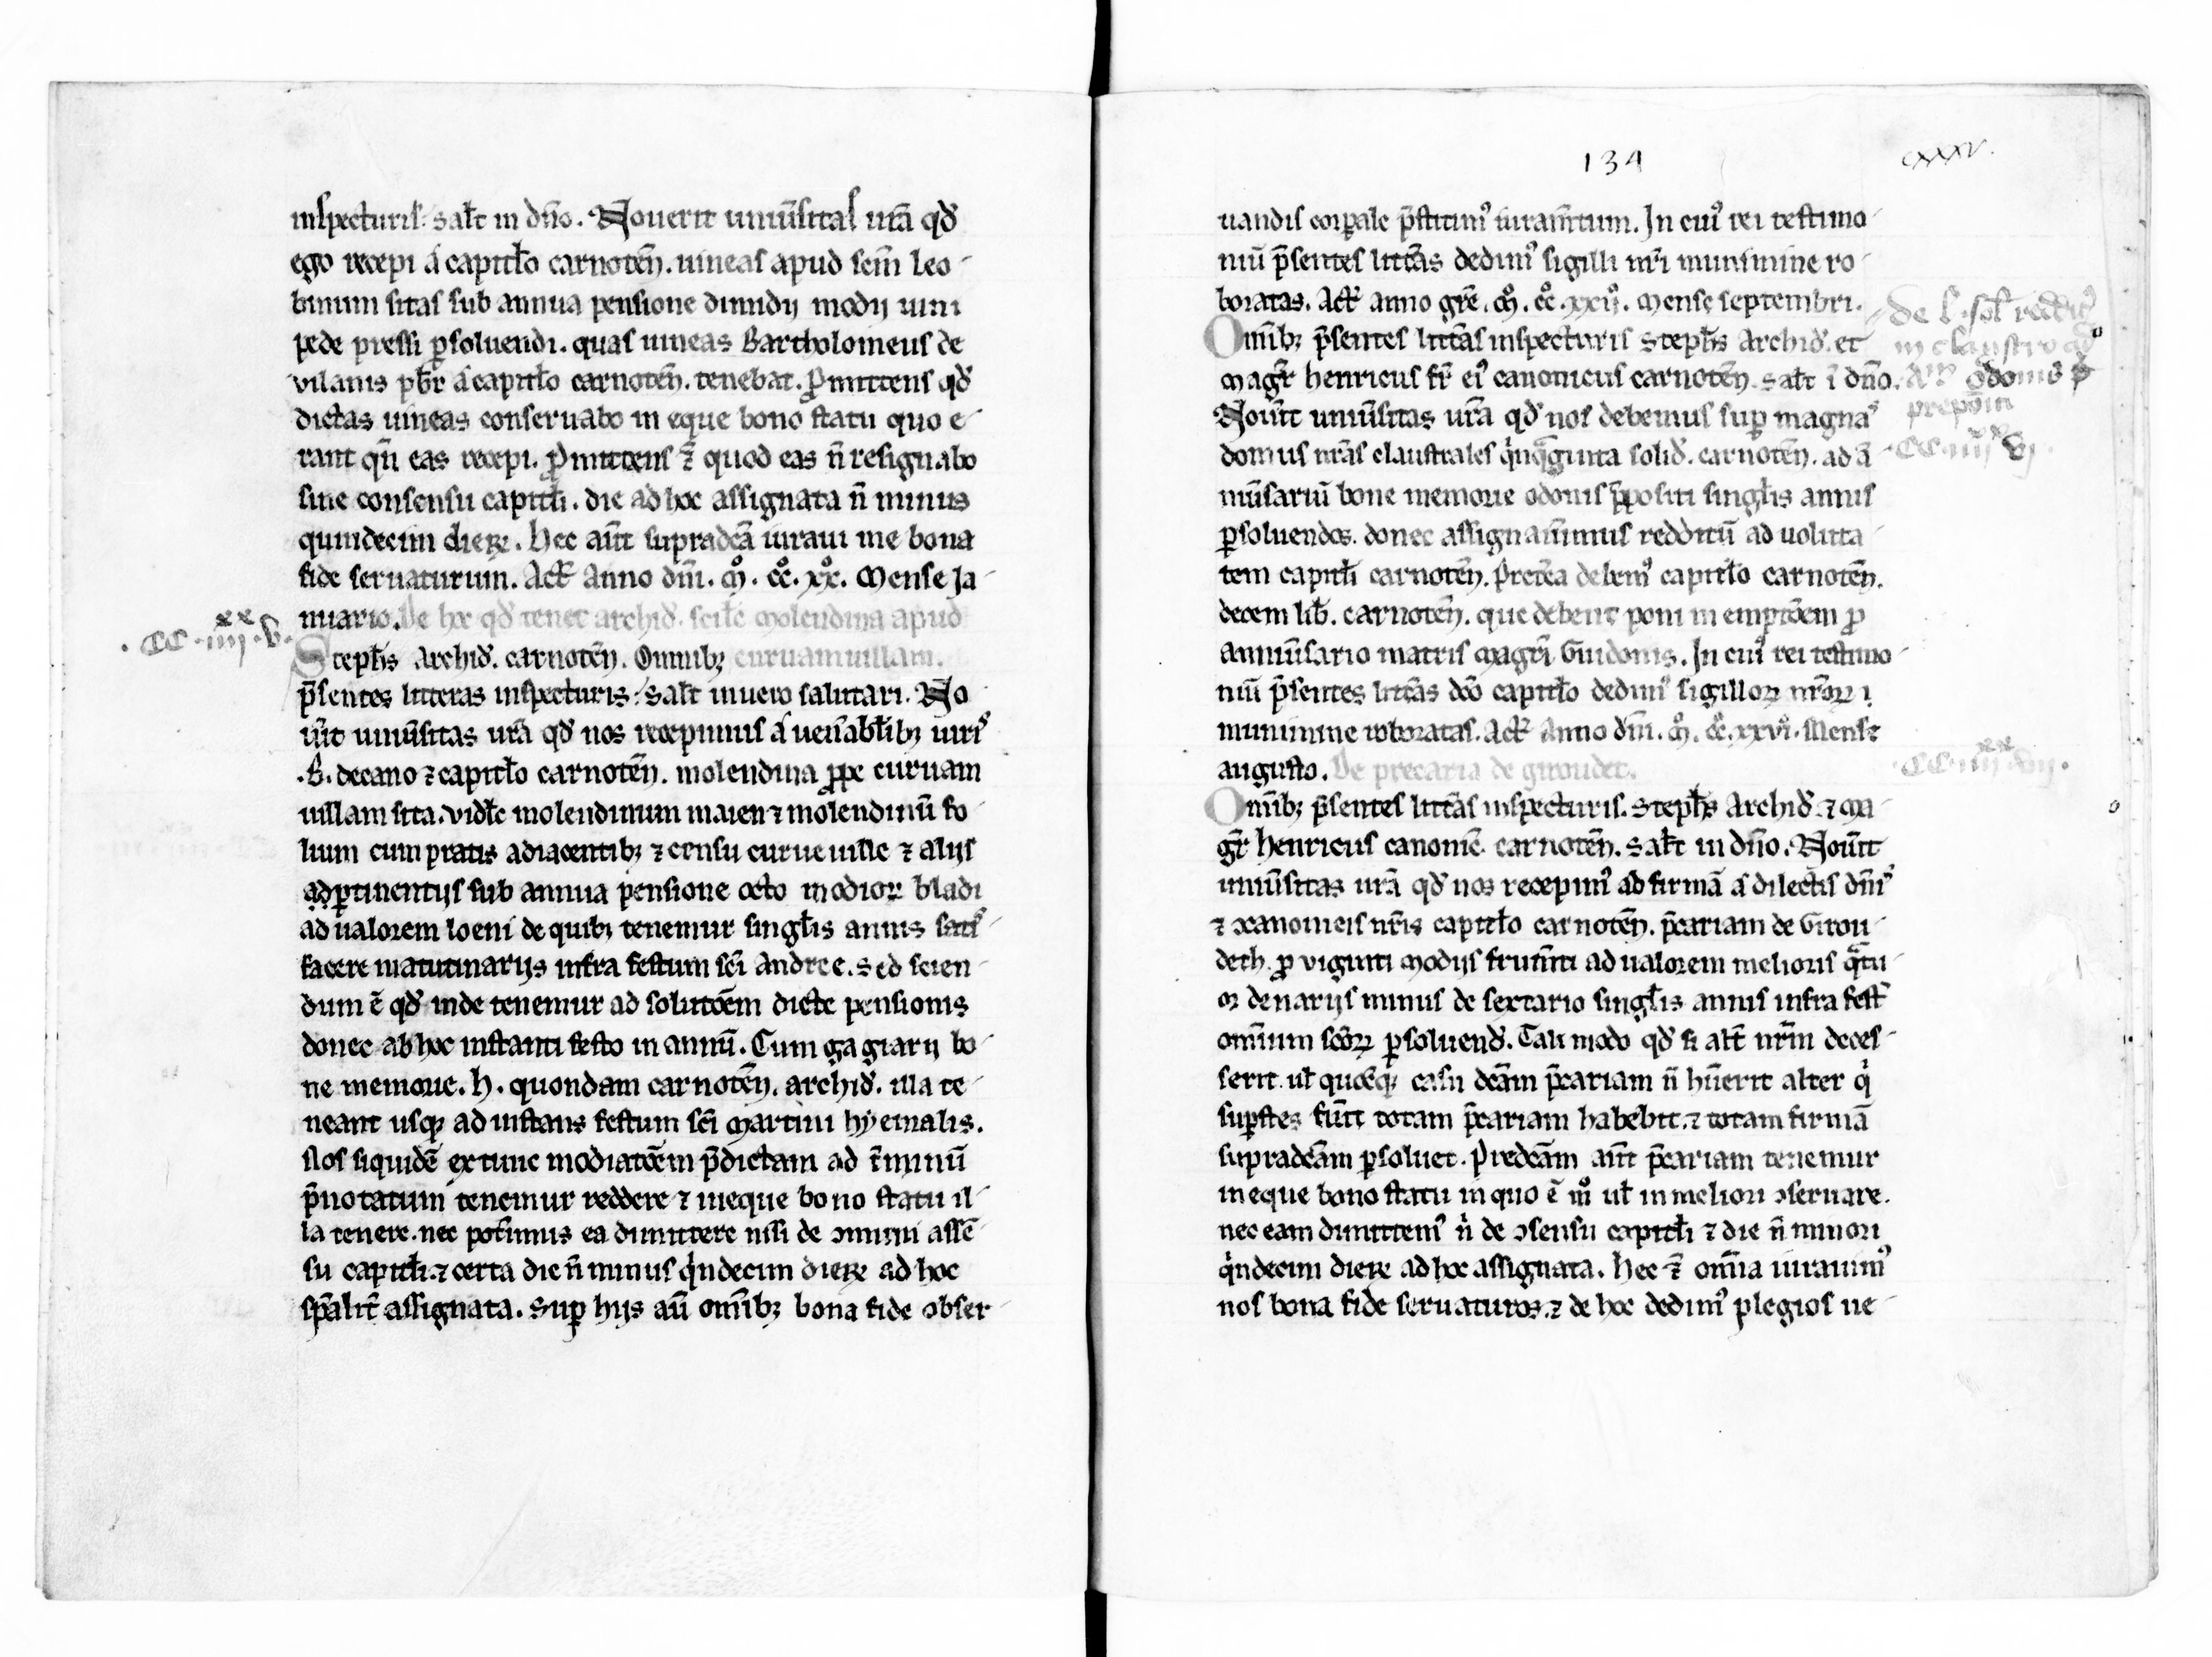 inspecturis. salt̄ in dn̄o. Nouerit uniūsitas ur̄a qd̄
ego recepi a capitlo carnoten̄. uineas apud scm̄ leo
binum sitas sub annua pensione dimidij modij uini
pede pressi p̱soluendi. quas uineas Bartholomeus de
vilanis pbr̄ a capitlo carnoten̄. tenebat. Pmittens qd̄
dictas uineas conseruabo in eque bono statu quo e
rant qn̄ eas recepi. pmittens ⁊̄ quod eas n̄ resignabo
sine consensu capitłi. die ad hoc assignata n̄ minus
quindecim dieꝝ. hec aūt supradcā iuraui me bona
fide seruaturum. Act̄ Anno dn̄i. mͦ. ccͦ. xxͦ. Mense Ja
nuario. De hoc qd̄ tenet archid̄. scilc̄ molendina apud
.CC.iiij.xx v.
Stepħs Archid̄. carnoten̄. Omnibꝫ curuamuillam.
p̄sentes litteras inspecturis. salt̄ in uero salutari. No
uīt uniūsitas ur̄a qd̄ nos recepimus a uen̄abłibꝫ uiris
.B. decano ⁊ capitlo carnoten̄. molendina ꝓpe curuam
uillam sita. vidłc molendinum maien ⁊ molendinū fo
lium cum pratis adiacentibꝫ ⁊ censu curue uille ⁊ alijs
ad ꝑtinentijs sub annua pensione octo modioꝝ bladi
ad ualorem loeni de quibꝫ tenemur singłis annis satis
facere matutinarijs infra festum sci̅ Andree. Sed scien
dum ē qd̄ inde tenemur ad solutōem dicte pensionis
donec ab hoc instanti festo in annū. Cum gagiarij bo
ne memorie. h. quondam carnoten̄. archid̄. illa te
neant usqꝫ ad instans festum sci̅ Martini hyemalis.
Nos siquidē extunc modiatōem p̄dictam ad t̄minū
p̄notatum tenemur reddere ⁊ in eque bono statu il
la tenere. nec pot̄imus ea dimittere nisi de ꝯmuni assē
su capitłi. ⁊ certa die n̄ minus qͥndecim dieꝝ ad hoc
spāliт̄ assignata. Suꝑ hijs aū omībꝫ bona fide obser
134
cxxxv.
uandis corꝑale p̄stitimꝰ iuram̄tum. In cuiꝰ rei testimo
niū p̄sentes litt̄as dedimꝰ sigilli nr̄i munimine ro
boratas. Act̄ anno grē. mͦ. ccͦ. xxijͦ. Mense septembri.
De l. sol̄ redditꝰ
in claustro ad
aͬͬ odonis p̄
prepo̅iti
.CC.iiij.xx vj.
Omībꝫ p̄sentes litt̄as inspecturis Stepħs Archid̄. et
magr̄ henricus fr̄ eiꝰ canonicus carnoten̄. salt̄ ī dn̄o.
Nouīt uniūsitas ur̄a qd̄ nos debemus suꝑ magnas
domus nr̄as claustrales qͥnqͣginta solid̄. carnoten̄. ad ā
niūsariū bone memorie odonis p̄positi singłis annis
ꝑsoluendos. donec assignauīmus redditū ad uolūta
tem capitłi carnoten̄. Pretēa debemꝰ capitlo carnoten̄.
decem lib̄. carnoten̄. que debent poni in emptōem ꝓ
anniūsario matris magr̄i Guidonis. In cuiꝰ rei testimo
niū p̄sentes litt̄as dc̄o capitlo dedimꝰ sigilloꝝ nr̄oꝝ
munimine roboratas. Act̄ Anno dn̄i. mͦ. ccͦ. xxviͦ. Mense
augusto. De precaria de giroudet.
.CC.iiij.xx vij.
Omībꝫ p̄sentes litt̄as inspecturis. Stepħs Archid̄. ⁊ ma
gr̄ henricus canonic̄. carnoten̄. salt̄ in dn̄o. Nouīt
uniūsitas ur̄a qd̄ nos recepimꝰ ad firmā a dilectis dn̄is
⁊ ꝯcanonicis nr̄is capitlo carnoten̄. p̄cariam de Girou
deth. ꝓ viginti modijs frum̄ti ad ualorem melioris qͣtu
or denarijs minus de sextario singłis annis infra fest̄
omīum sc̄oꝝ ꝑsoluend̄. Tali modo qd̄ si alt̄ nr̄m deces
serit. uł quocūqꝫ casu dc̄am p̄cariam n̄ hūerit alter qͥ
suꝑstes fūit totam p̄cariam habebit. ⁊ totam firmā
supradc̄am ꝑsoluet. Predc̄am aūt p̄cariam tenemur
in eque bono statu in quo ē mͦ uł in meliori ꝯseruare.
nec eam dimittemꝰ nͥ de ꝯsensu capitłi ⁊ die n̄ minori
qͥndecim dieꝝ ad hoc assignata. hec ⁊̄ omīa iurauimꝰ
nos bona fide seruaturos. ⁊ de hoc dedimꝰ plegios ue